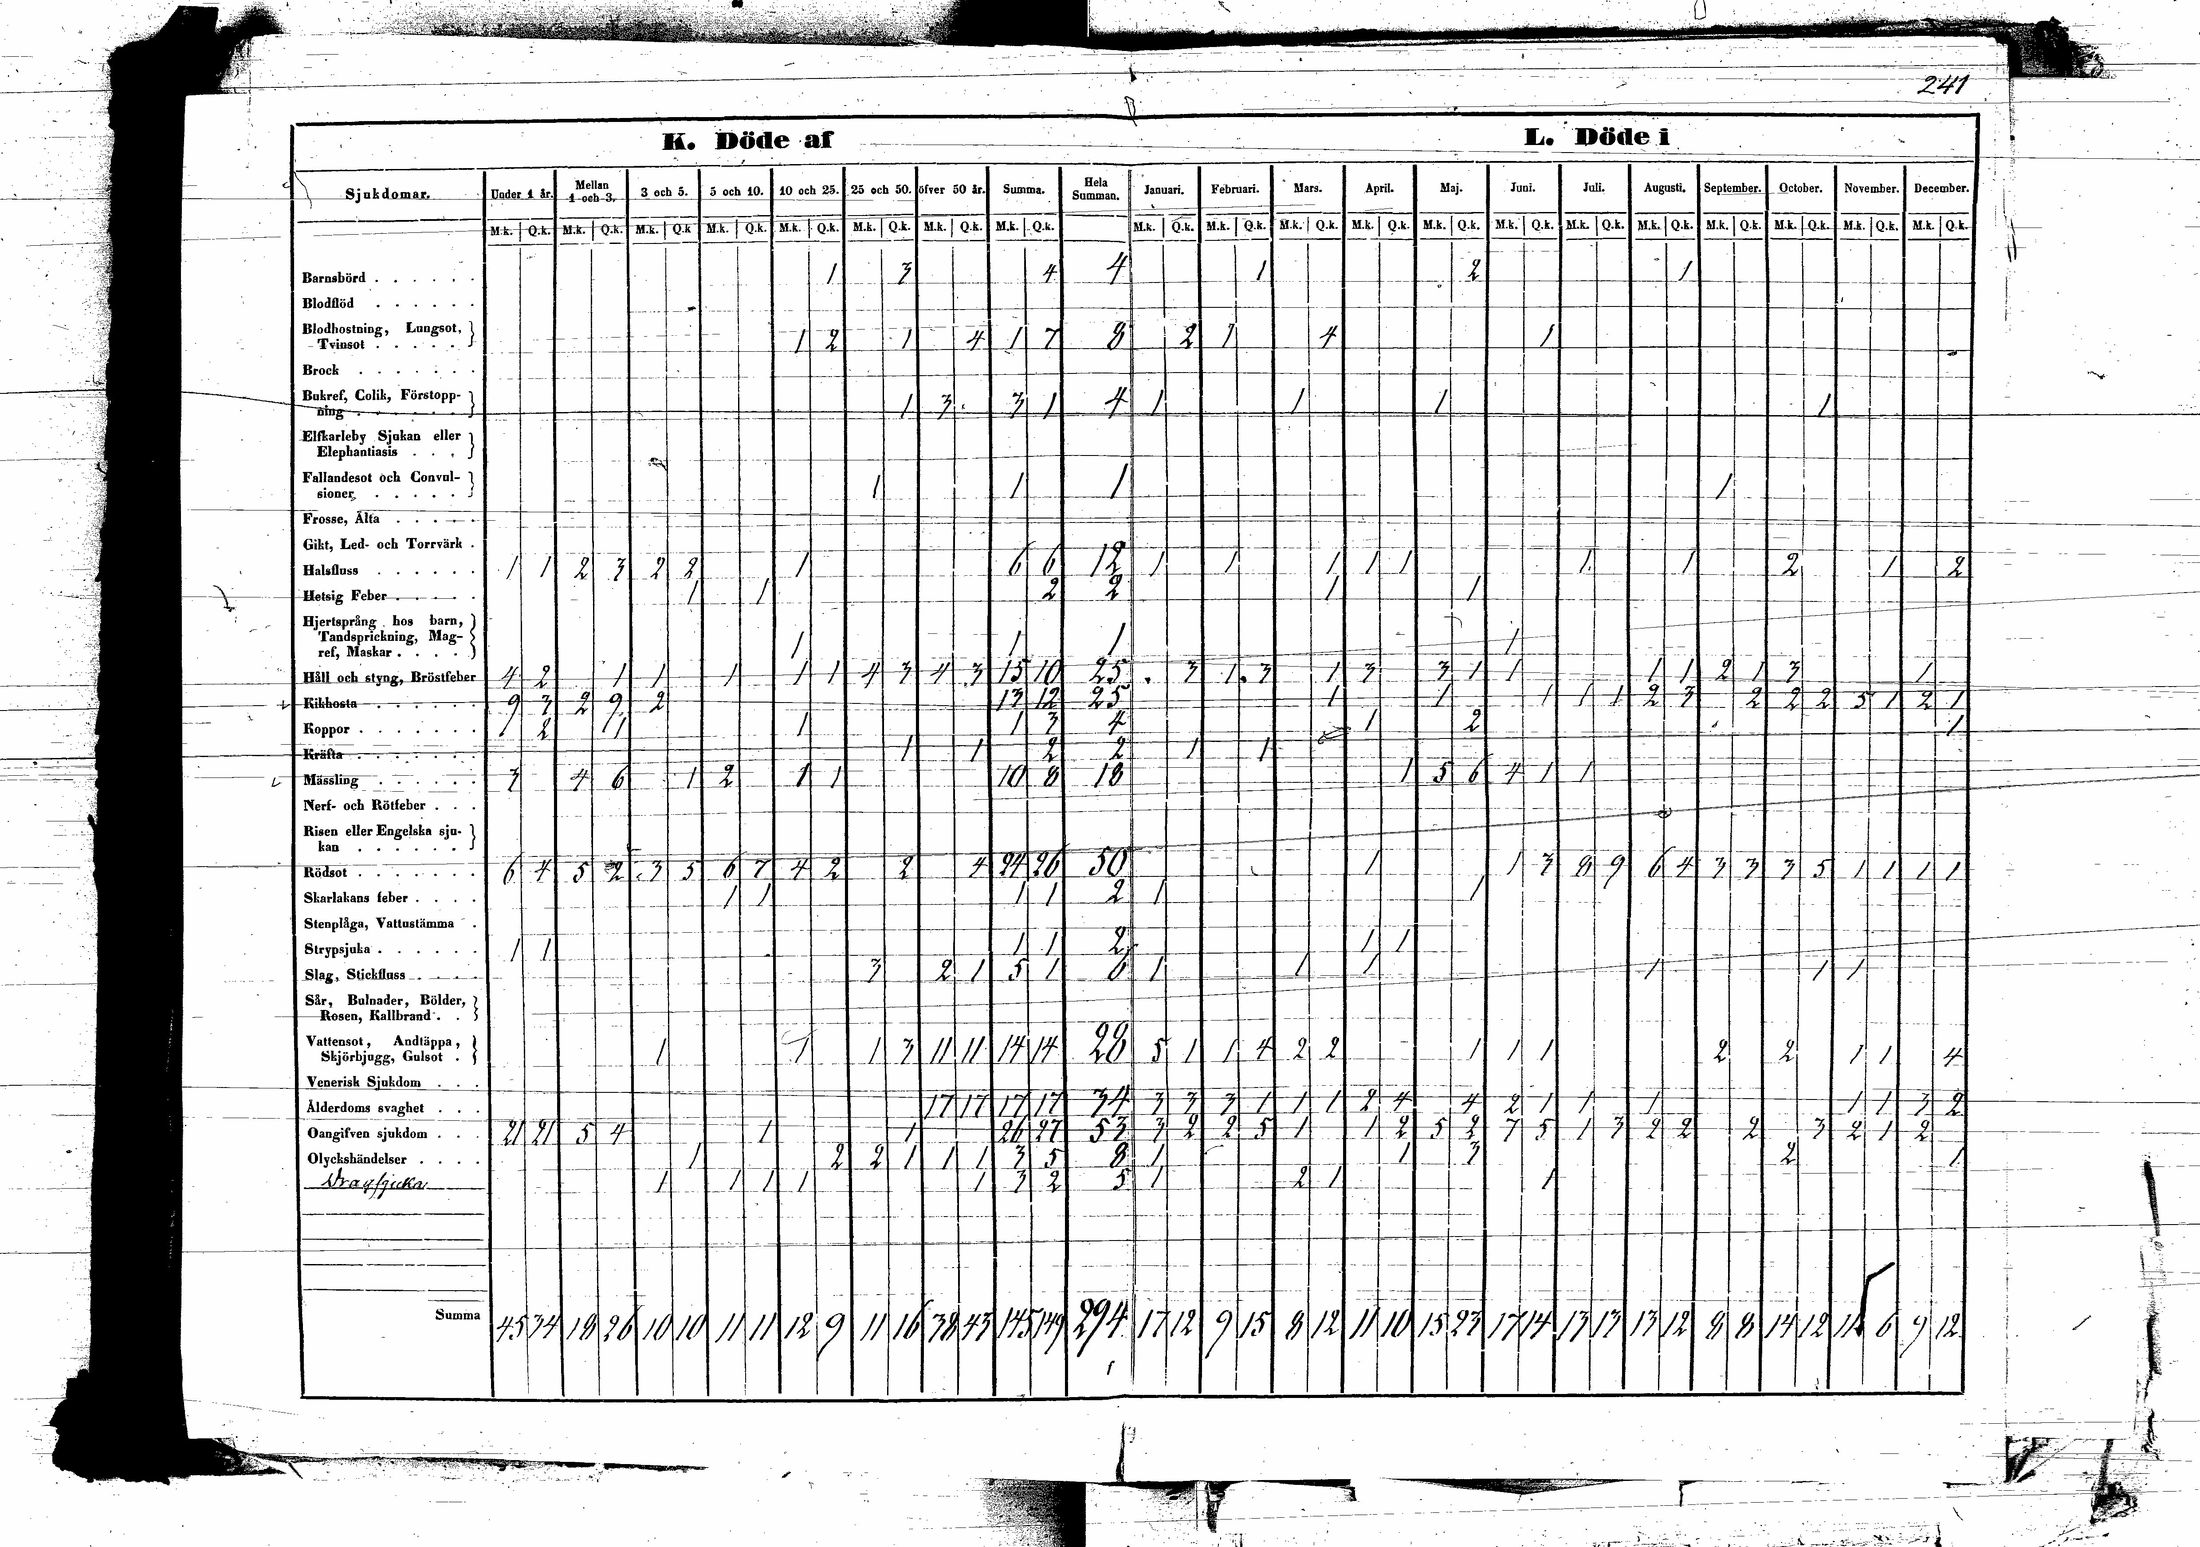 241
K. Döde af L. Döde i
Sjukdomar. Under 1 år. Mellan 1 och 3. 3 och 5. 5 och 10. 10 och 25. 25 och 50. öfver 50 år. Summa. Hela Summan. Januari. Februari. Mars. April. Maj. Juni. Juli. Augusti. September. October. November. December.
M.k. Q.k. M.k. Q.k. M.k. Q.k M.k. Q.k. M.k. Q.k. M.k. Q.k. M.k. Q.k. M.k. Q.k. M.k. Q.k. M.k. Q.k. M.k. Q.k. M.k. Q.k. M.k. Q.k. M.k. Q.k. M.k. Q.k. M.k. Q.k. M.k. Q.k. M.k. Q.k. M.k. Q.k. M.k. Q.k.
Barnsbörd . . . . . . 1 3 4 4 1 2 1
Blodflöd . . . . . .
Blodhostning, Lungsot,
Tvinsot . . . . . 1 2 1 4 1 7 8 2 1 4 1
Brock . . . . . . .
Bukref, Colik, Förstopp-
ning . . . . . . 1 3 3 1 4 1 1 1 1
Elfkarleby Sjukan eller
Elephantiasis . . .
Fallandesot och Convul-
sioner . . . . . 1 1 1 1
Frosse, Älta . . . . .
Gikt, Led- och Torrvärk .
Halsfluss . . . . . . 1 1 2 3 2 2 1 6 6 12 1 1 1 1 1 1 1 2 1 2
Hetsig Feber . . . . . 1 1 2 2 1 1
Hjertsprång hos barn,
Tandsprickning, Mag-
ref, Maskar . . . . 1 1 1 1
Håll och styng, Bröstfeber 4 2 1 1 1 1 1 4 3 4 3 15 10 25 3 1 3 1 3 3 1 1 1 1 2 1 3 1
Kikhosta . . . . . . . 9 3 2 9 2 13 12 25 1 1 1 1 1 2 3 2 2 2 5 1 2 1
Koppor . . . . . . . 1 2 1 1 1 3 4 1 2 1
Kräfta . . . . . . . 1 1 2 2 1 1
Mässling . . . . . . 3 4 6 1 2 1 1 10 8 18 1 5 6 4 1 1
Nerf- och Rötfeber . . .
Risen eller Engelska sju-
kan . . . . . .
Rödsot . . . . . . . 6 4 5 2 3 5 6 7 4 2 2 4 24 26 50 1 1 3 8 9 6 4 3 3 3 5 1 1 1 1
Skarlakans feber . . . . 1 1 1 1 2 1 1
Stenplåga, Vattustämma .
Strypsjuka . . . . . . 1 1 1 1 2 1 1
Slag, Stickfluss . . . . 3 2 1 5 1 6 1 1 1 1 1 1
Sår, Bulnader, Bölder,
Rosen, Kallbrand . .
Vattensot, Andtäppa,
Skjörbjugg, Gulsot . 1 1 1 3 11 11 14 14 28 5 1 1 4 2 2 1 1 1 2 2 1 1 4
Venerisk Sjukdom . . .
Ålderdoms svaghet . . . 17 17 17 17 34 3 3 3 1 1 1 2 4 4 2 1 1 1 1 1 3 2
Oangifven sjukdom . . . 21 21 5 4 1 1 26 27 53 3 2 2 5 1 1 2 5 2 7 5 1 3 2 2 2 3 2 1 2
Olyckshändelser . . . . 1 2 2 1 1 1 3 5 8 1 1 3 2 1
Dragsjuka 1 1 1 1 1 3 2 5 1 2 1 1
Summa 45 34 18 26 10 10 11 11 12 9 11 16 38 43 145 149 294 17 12 9 15 8 12 11 10 15 23 17 14 13 13 13 12 8 8 14 12 11 6 9 12